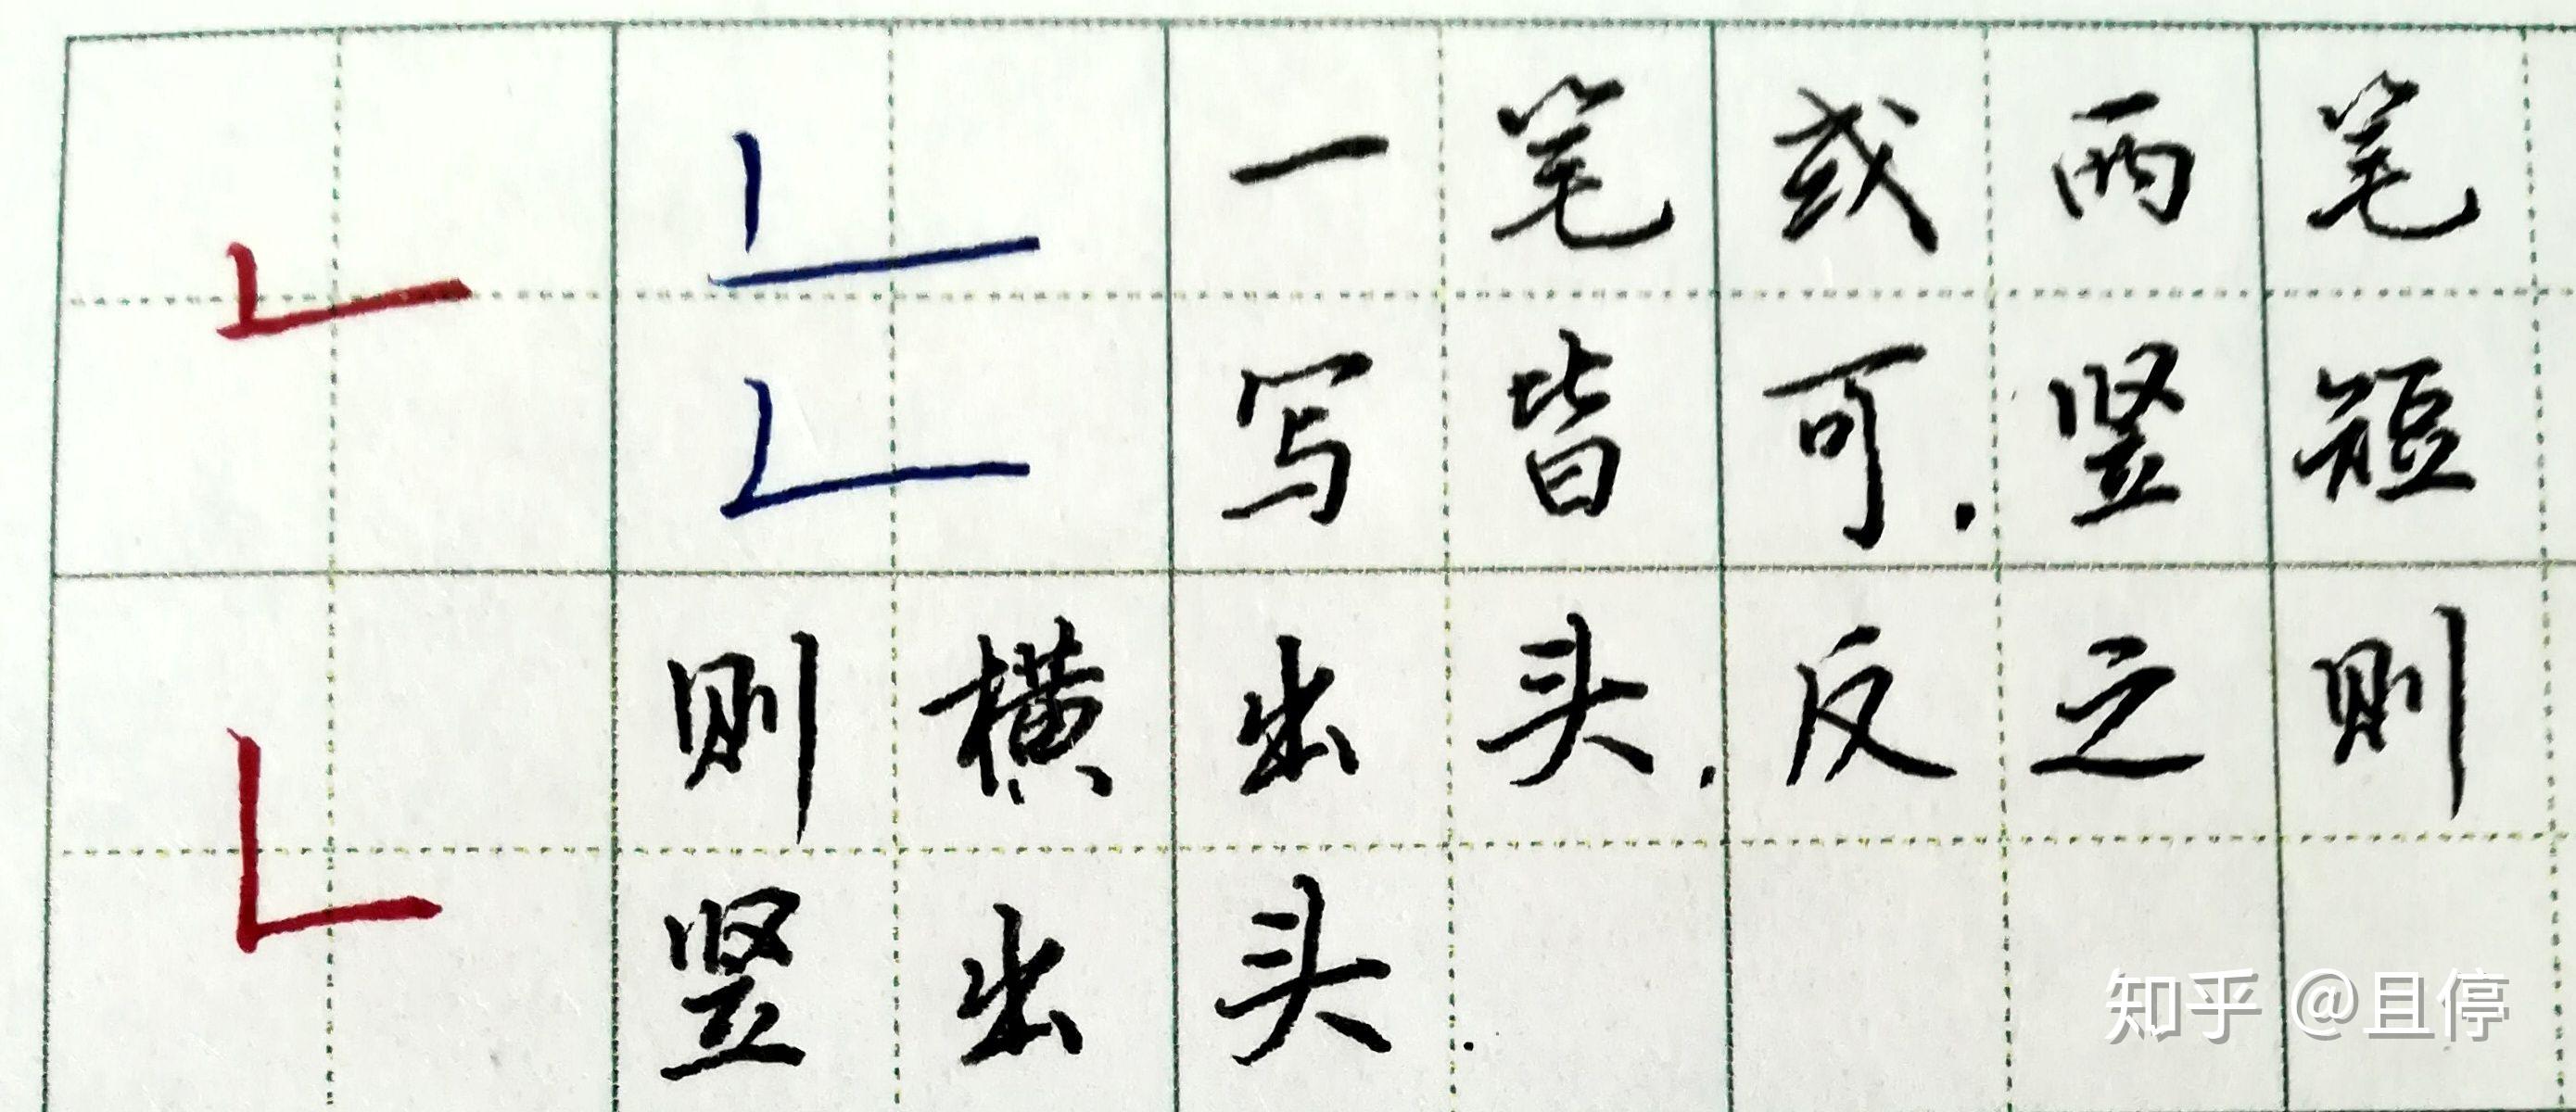 一笔或两笔
写皆可.竖短
则横出头.反之则
竖出头.
知乎 @且停